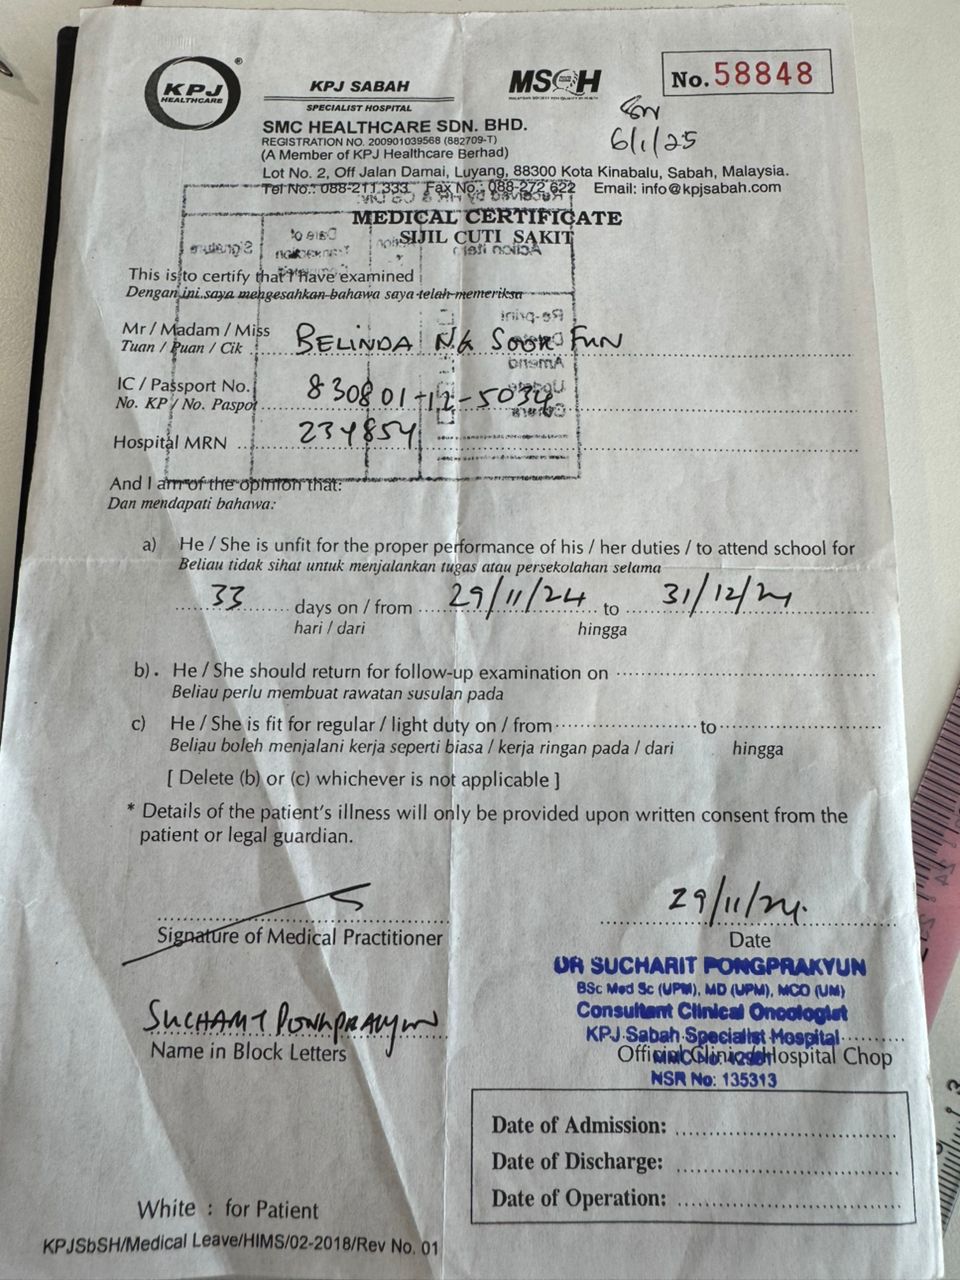 KPJ
HEALTHCARE
®
KPJ SABAH
SPECIALIST HOSPITAL
MSQH
MALAYSIAN SOCIETY FOR QUALITY IN HEALTH
No. 58848
6/1/25
SMC HEALTHCARE SDN. BHD.
REGISTRATION NO. 200901039568 (882709-T)
(A Member of KPJ Healthcare Berhad)
Lot No. 2, Off Jalan Damai, Luyang, 88300 Kota Kinabalu, Sabah, Malaysia.
Tel No.: 088-211 333 Fax No.: 088-272 622 Email: info@kpjsabah.com
MEDICAL CERTIFICATE
SIJIL CUTI SAKIT
This is to certify that I have examined
Dengan ini saya mengesahkan bahawa saya telah memeriksa
Mr / Madam / Miss BELINDA NG SOOK FUN
Tuan / Puan / Cik
IC / Passport No. 830801-12-5034
No. KP / No. Paspot
Hospital MRN 234854
And I am of the opinion that:
Dan mendapati bahawa:
a) He / She is unfit for the proper performance of his / her duties / to attend school for
Beliau tidak sihat untuk menjalankan tugas atau persekolahan selama
33 days on / from 29/11/24 to 31/12/24
hari / dari hingga
b). He / She should return for follow-up examination on
Beliau perlu membuat rawatan susulan pada
c) He / She is fit for regular / light duty on / from to
Beliau boleh menjalani kerja seperti biasa / kerja ringan pada / dari hingga
[ Delete (b) or (c) whichever is not applicable ]
* Details of the patient's illness will only be provided upon written consent from the
patient or legal guardian.
29/11/24.
Signature of Medical Practitioner
Date
DR SUCHARIT PONGPRAKYUN
BSc Med Sc (UPM), MD (UPM), MCO (UM)
Consultant Clinical Oncologist
KPJ Sabah Specialist Hospital
SUCHARIT PONGPRAKYUN
Name in Block Letters
Official Clinic / Hospital Chop
NSR No: 135313
Date of Admission:
Date of Discharge:
Date of Operation:
White : for Patient
KPJSbSH/Medical Leave/HIMS/02-2018/Rev No. 01